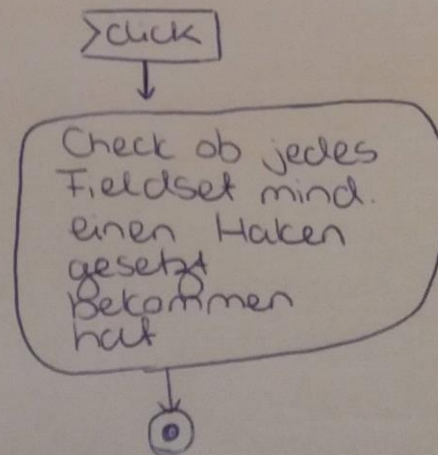 click
Check ob jedes
Fieldset mind.
einen Haken
gesetzt
Bekommen
hat